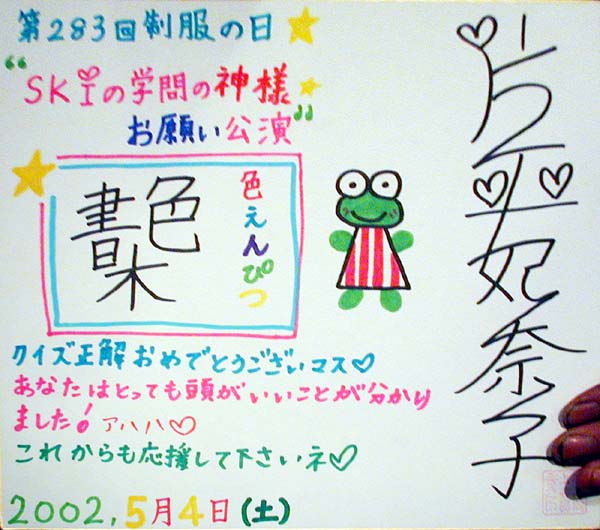 第283回制服の日
“SKiの学問の神様
お願い公演”
書色木
色えんぴつ
クイズ正解おめでとうございマス♡
あなたはとっても頭がいいことが分かり
ました！アハハ♡
これからも応援して下さいネ♡
2002.5月4日(土)
片平妃奈子